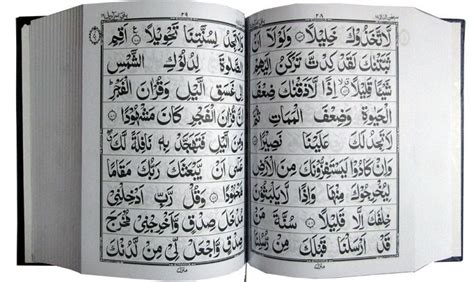 لَاتَّخَذُوكَ خَلِيلًا ۝ وَلَوْلَا أَنْ
ثَبَّتْنٰكَ لَقَدْ كِدْتَّ تَرْكَنُ إِلَيْهِمْ
شَيْئًا قَلِيلًا ۝ إِذًا لَّأَذَقْنٰكَ ضِعْفَ
الْحَيٰوةِ وَضِعْفَ الْمَمَاتِ ثُمَّ
لَا تَجِدُ لَكَ عَلَيْنَا نَصِيرًا ۝
وَإِنْ كَادُوا لَيَسْتَفِزُّونَكَ مِنَ الْأَرْضِ
لِيُخْرِجُوكَ مِنْهَا وَإِذًا لَّا يَلْبَثُونَ
خِلٰفَكَ إِلَّا قَلِيلًا ۝ سُنَّةَ مَنْ
قَدْ أَرْسَلْنَا قَبْلَكَ مِنْ
۳۹
وَلَا تَجِدُ لِسُنَّتِنَا تَحْوِيلًا ۝ أَقِمِ
الصَّلٰوةَ لِدُلُوكِ الشَّمْسِ
إِلٰى غَسَقِ الَّيْلِ وَقُرْاٰنَ الْفَجْرِ
إِنَّ قُرْاٰنَ الْفَجْرِ كَانَ مَشْهُودًا ۝
وَمِنَ الَّيْلِ فَتَهَجَّدْ بِهِ نَافِلَةً لَّكَ
عَسٰى أَنْ يَّبْعَثَكَ رَبُّكَ مَقَامًا
مَّحْمُودًا ۝ وَقُلْ رَّبِّ أَدْخِلْنِي
مُدْخَلَ صِدْقٍ وَّأَخْرِجْنِي مُخْرَجَ
صِدْقٍ وَّاجْعَلْ لِّي مِنْ لَّدُنْكَ